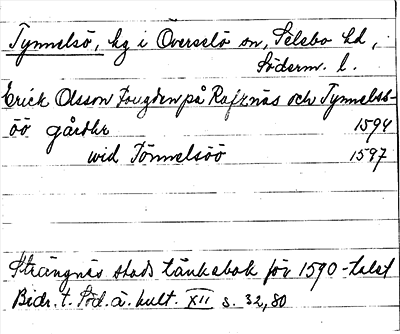 Tynnelsö, hg i Överselö sn, Selebo hd,
Söderm. l.
Erick Olsson Fougden på Rafsnäs och Tynnelss-
öö gårdhr 1594
wid Tönnelsöö 1597
Strängnäs stads tänkebok för 1590-talet
Bidr. t. Söd. ä. kult. XII s. 32, 80